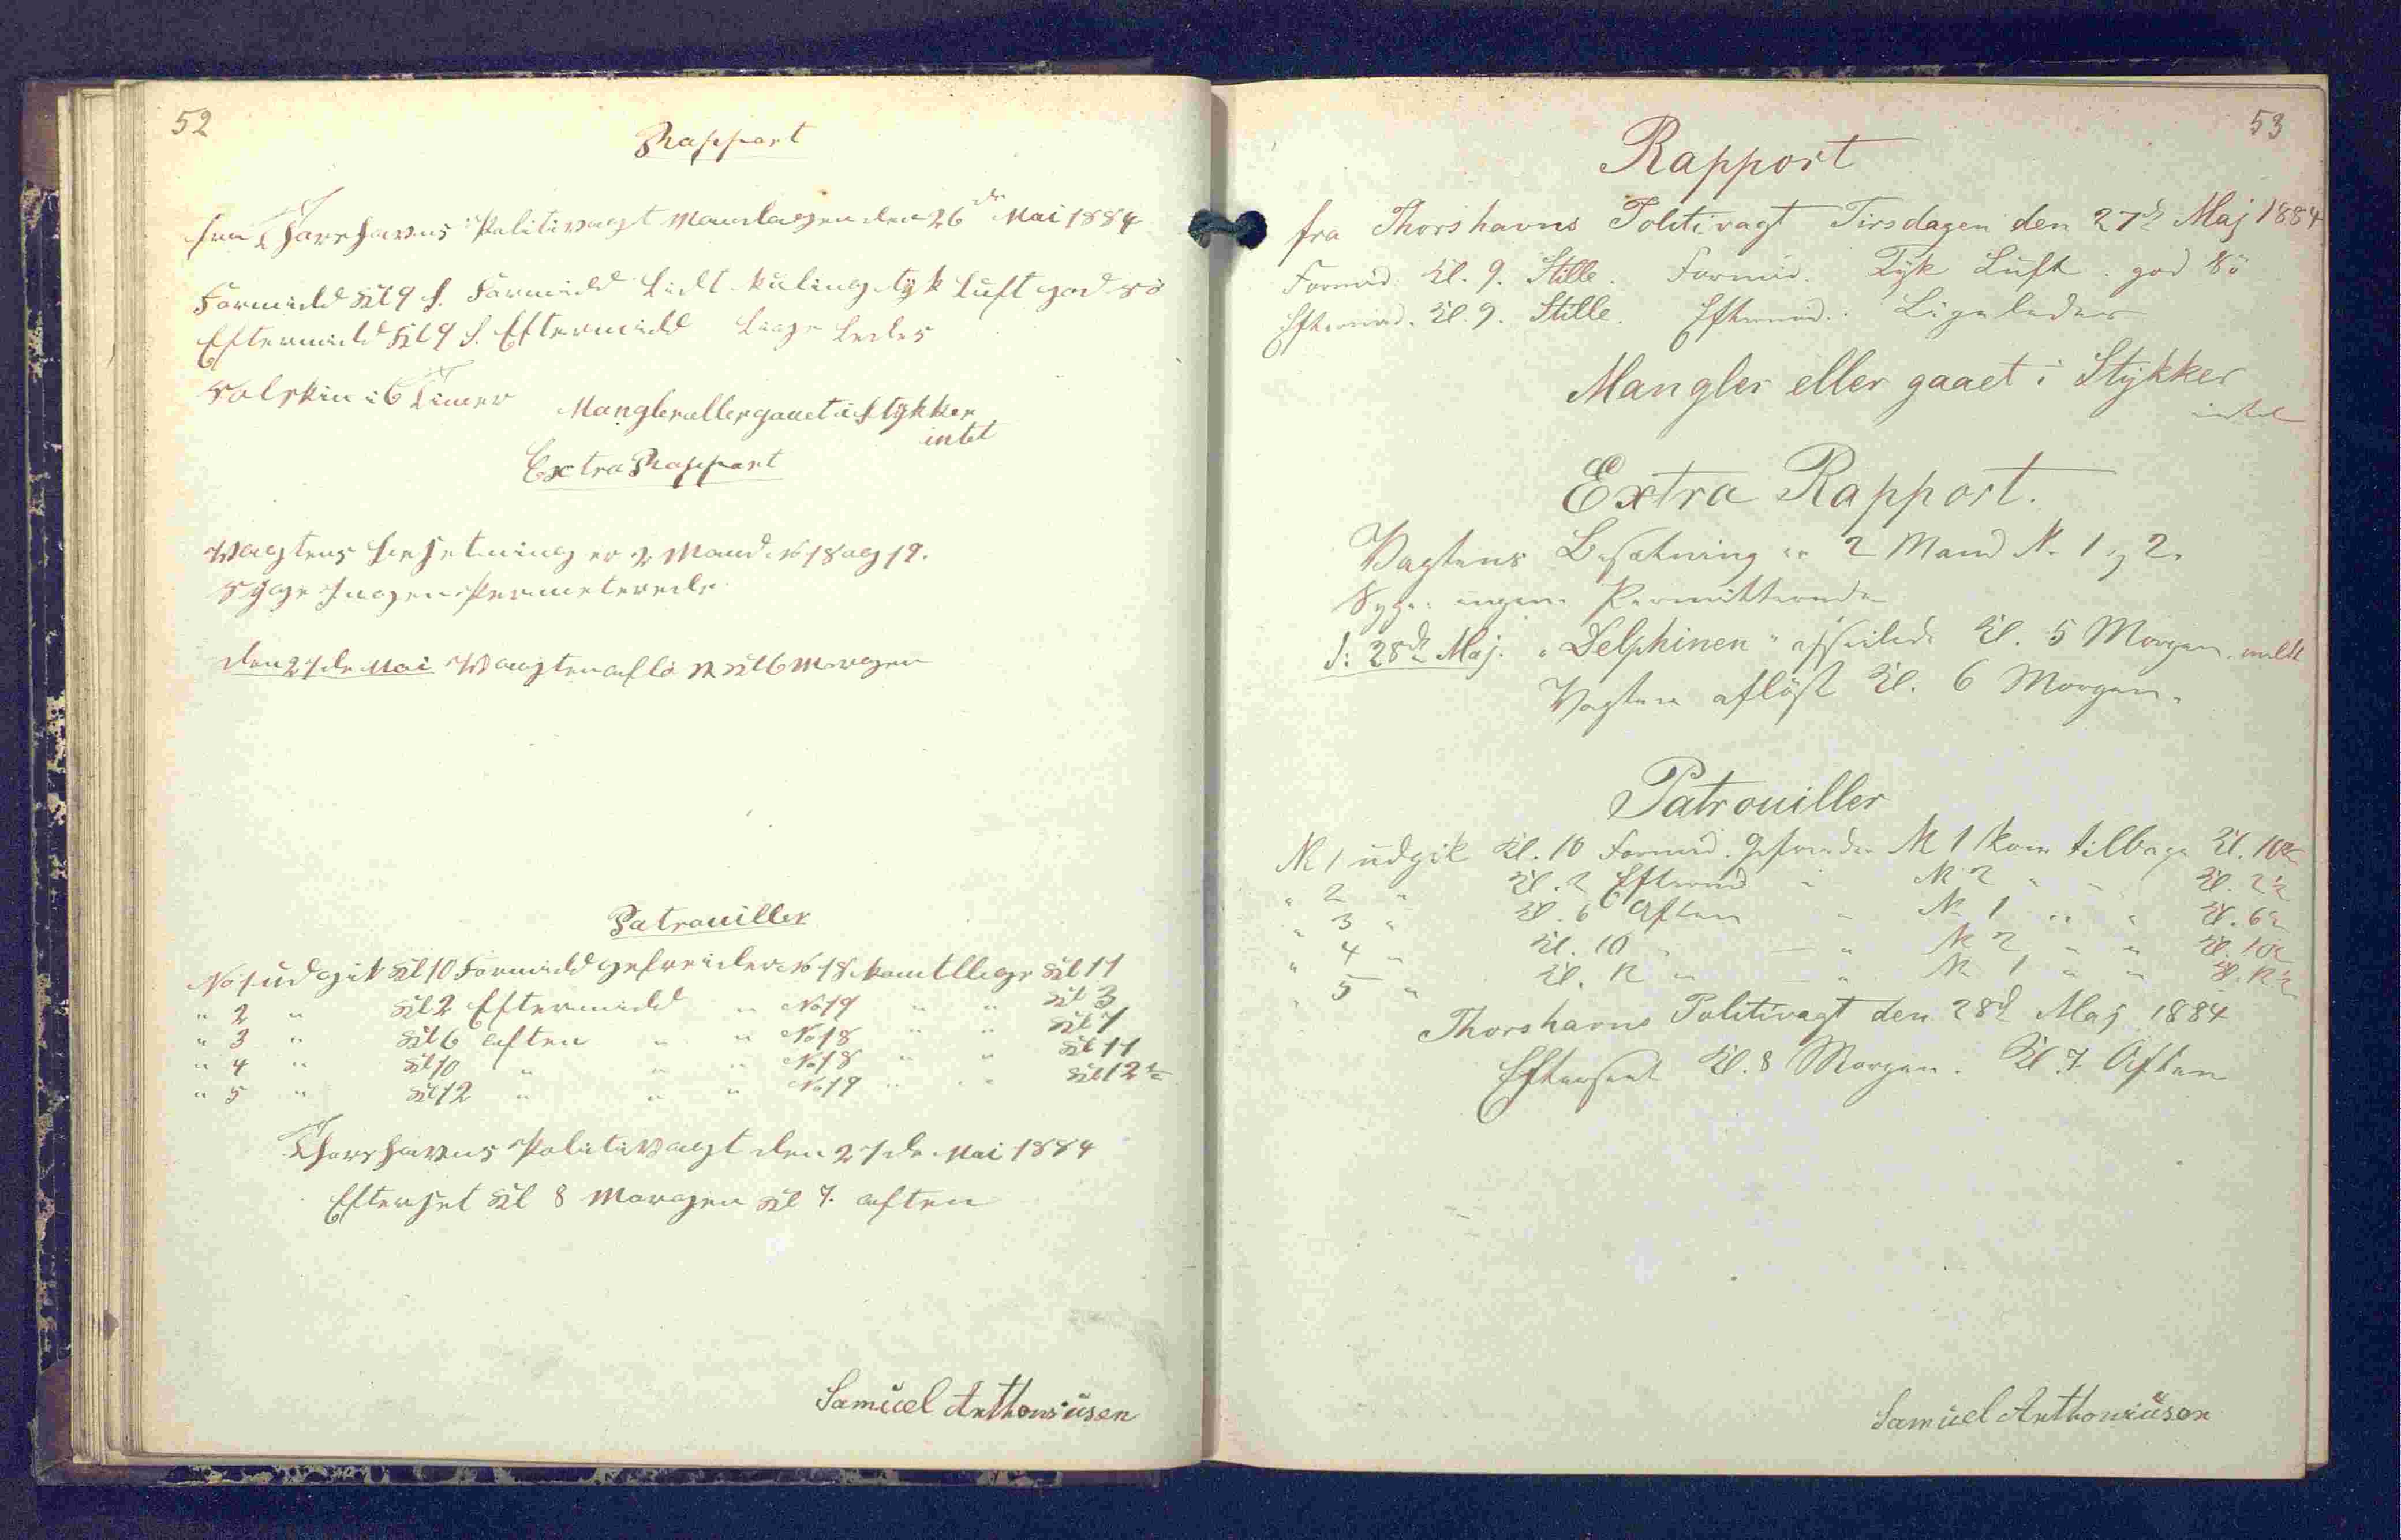 52
Rapport
fra Thorshavns Politivagt Mandagen den 26de Mai 1884
Formidd Kl 9 S. Formidd Lidt kuling tyk Luft god Sö
Eftermidd Kl 9 S. Eftermidd Liige Ledes
Solskin i 6 Timer
Mangler eller gaaet i Stykker
intet
Extra Rapport
Wagtens Besetning er 2 Mand No 18 og 19.
Syge Ingen Permeterede
den 27de Mai Wagten aflöst Kl 6 Morgen
Patrouiller
No 1 udgik Kl 10 Formidd gefreider No 18 kom tilbage Kl 11
" 2 " Kl 2 Eftermidd " No 19 " " Kl 3
" 3 " Kl 6 aften " " No 18 " " Kl 7
" 4 " Kl 10 " " " No 18 " " Kl 11
" 5 " Kl 12 " " " No 19 " " Kl 12½
Thorshavns Politivagt den 27de Mai 1884
Efterset Kl 8 Morgen Kl 7. aften
Samuel Anthoniusen
53
Rapport
fra Thorshavns Politivagt Tirsdagen den 27de Maj 1884
Formid. Kl. 9. Stille. Formid. Tyk Luft. god Sö
Eftermid. Kl. 9. Stille. Eftermid. Ligeledes
Mangler eller gaaet i Stykker
intet
Extra Rapport.
Vagtens Besætning er 2 Mand No 1 og 2.
Syge: ingen. Permitterede
d: 28de Maj. "Delphinen" afseilede Kl. 5 Morgen. meldt
Vagten aflöst Kl. 6 Morgen.
Patrouiller
No 1 udgik Kl. 10 Formid. Gefreider No 1 kom tilbage Kl. 10½
" 2 " Kl. 2 Eftermid " No 2 " " Kl. 2½
" 3 " Kl. 6 Aften " No 1 " " Kl. 6½
" 4 " Kl. 10 " " No 2 " " Kl. 10½
" 5 " Kl. 12 " " No 1 " " Kl. 12½
Thorshavns Politivagt den 28d Maj 1884
Efterseet Kl. 8 Morgen. Kl. 7. Aften
Samuel Anthoniusen